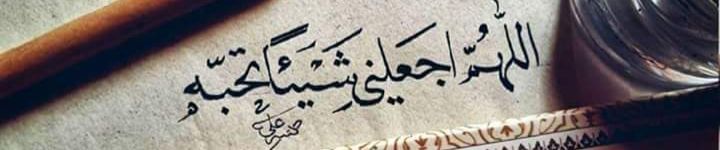 اللّهُمّ اجعلني شَيْئًا تحبّه